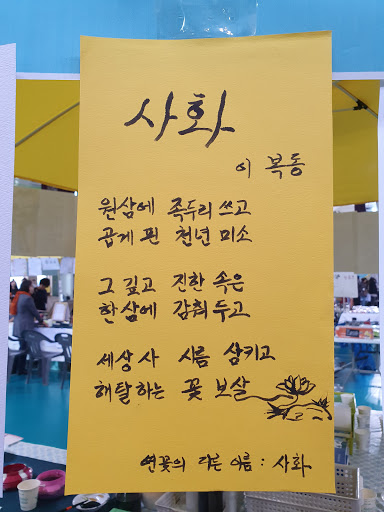 사화
이 복동
원삼에 족두리 쓰고
곱게 핀 천년 미소
그 깊고 진한 속은
한삼에 감춰 두고
세상 사 시름 삼키고
해탈하는 꽃 보살
연꽃의 다른 이름 : 사화